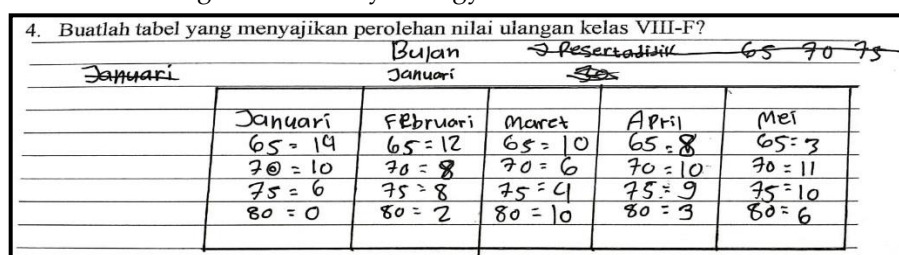 4. Buatlah tabel yang menyajikan perolehan nilai ulangan kelas VIII-F?
Bulan Σ Pesertadidik 65 70 75
Januari Januari 30
Januari Februari Maret April Mei
65 = 14 65 = 12 65 = 10 65 = 8 65 = 3
70 = 10 70 = 8 70 = 6 70 = 10 70 = 11
75 = 6 75 = 8 75 = 4 75 = 9 75 = 10
80 = 0 80 = 2 80 = 10 80 = 3 80 = 6